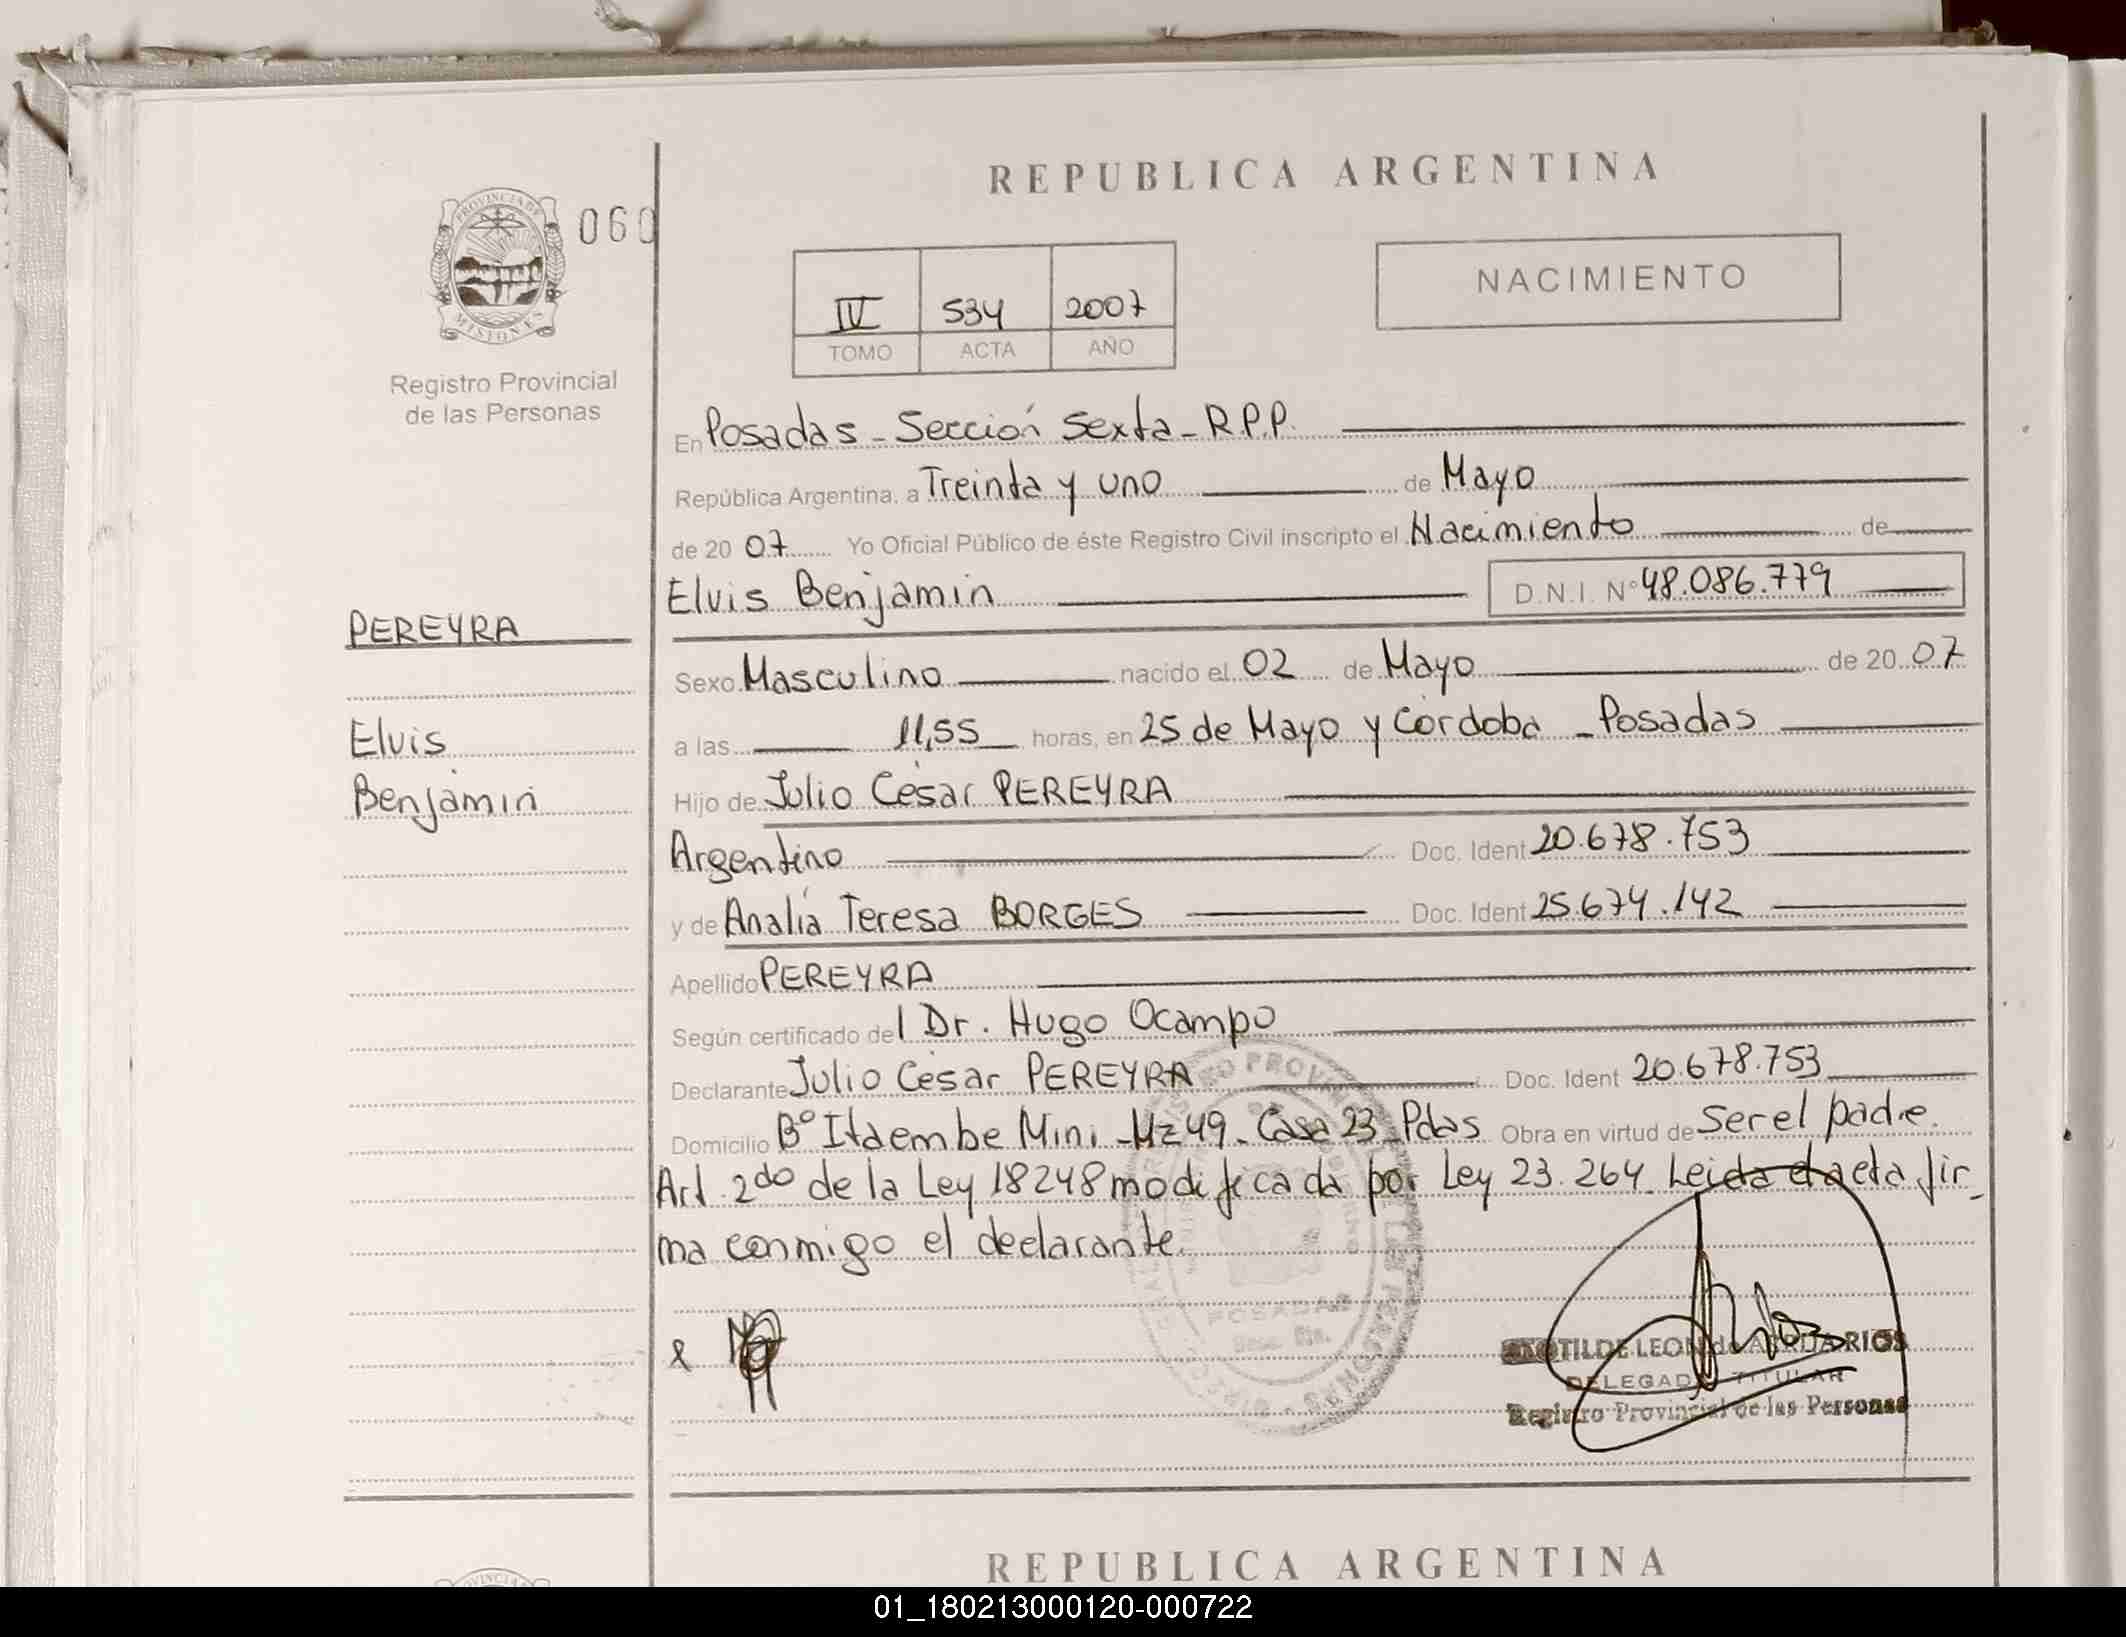 REPUBLICA ARGENTINA
PROVINCIA DE
MISIONES
060
NACIMIENTO
IV 534 2007
TOMO ACTA AÑO
Registro Provincial
de las Personas
En Posadas - Sección Sexta - R.P.P.
República Argentina, a Treinta y uno de Mayo
de 20 07 Yo Oficial Público de éste Registro Civil inscripto el Nacimiento de
Elvis Benjamin D.N.I. Nº 48.086.779
PEREYRA
Sexo Masculino nacido el 02 de Mayo de 20 07
Elvis
a las 11,55 horas, en 25 de Mayo y Córdoba - Posadas
Benjamin
Hijo de Julio César PEREYRA
Argentino Doc. Ident 20.678.753
y de Analía Teresa BORGES Doc. Ident 25.674.142
Apellido PEREYRA
Según certificado del Dr. Hugo Ocampo
Declarante Julio César PEREYRA Doc. Ident 20.678.753
Domicilio Bº Itaembe Mini - Mz 49 - Casa 23 - Pdas Obra en virtud de Ser el padre.
Art. 2do de la Ley 18248 modificada por Ley 23.264. Leida el acta fir_
ma conmigo el declarante.
POSADAS
LEON de
DELEGADA TITULAR
Registro Provincial de las Personas
REPUBLICA ARGENTINA
01_180213000120-000722